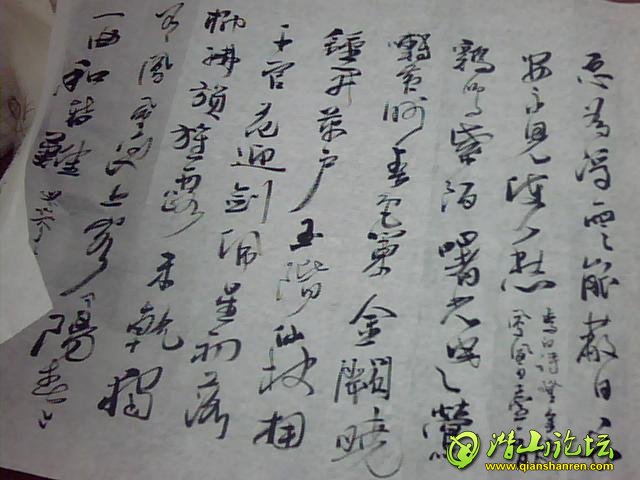 总为浮云能蔽日长
安不见使人愁
鷄鸣紫陌曙光寒鶯
囀黄州春色闌金闕曉
鍾开萬户玉階仙杖拥
千官花迎剑佩星初落
柳拂旗旌露未乾獨
有凤凰池上客陽春
一曲和
潜山论坛
www.qianshanren.com